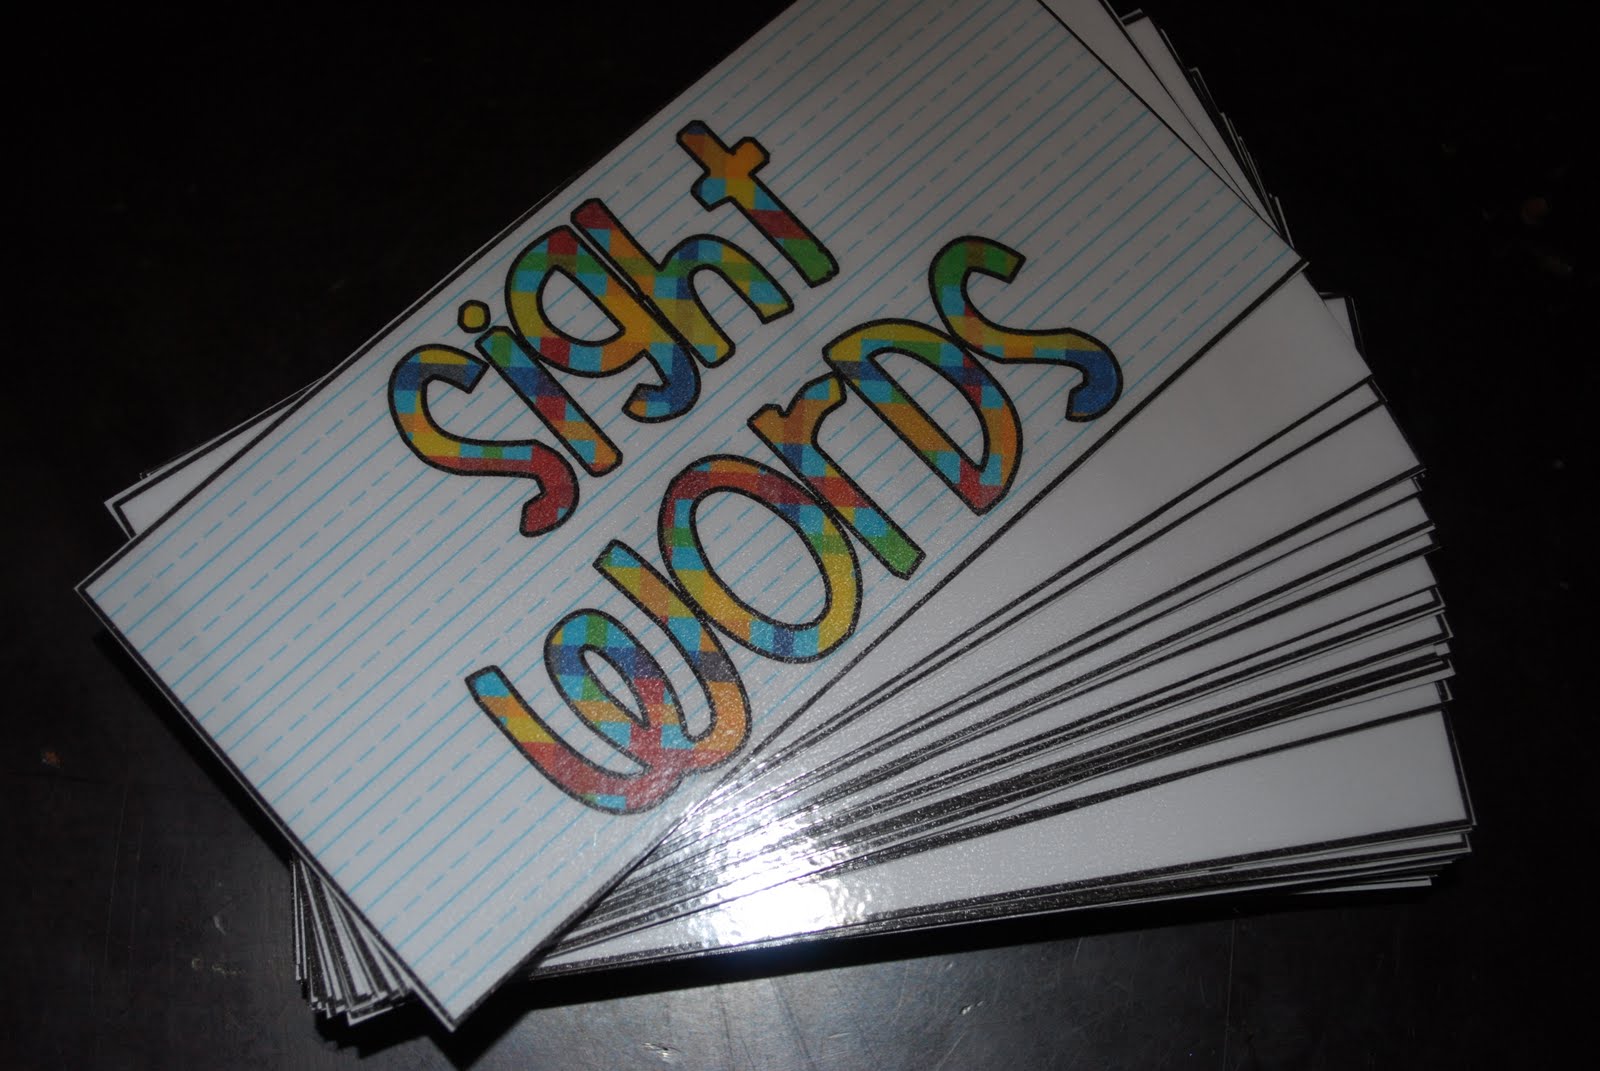 sight
words